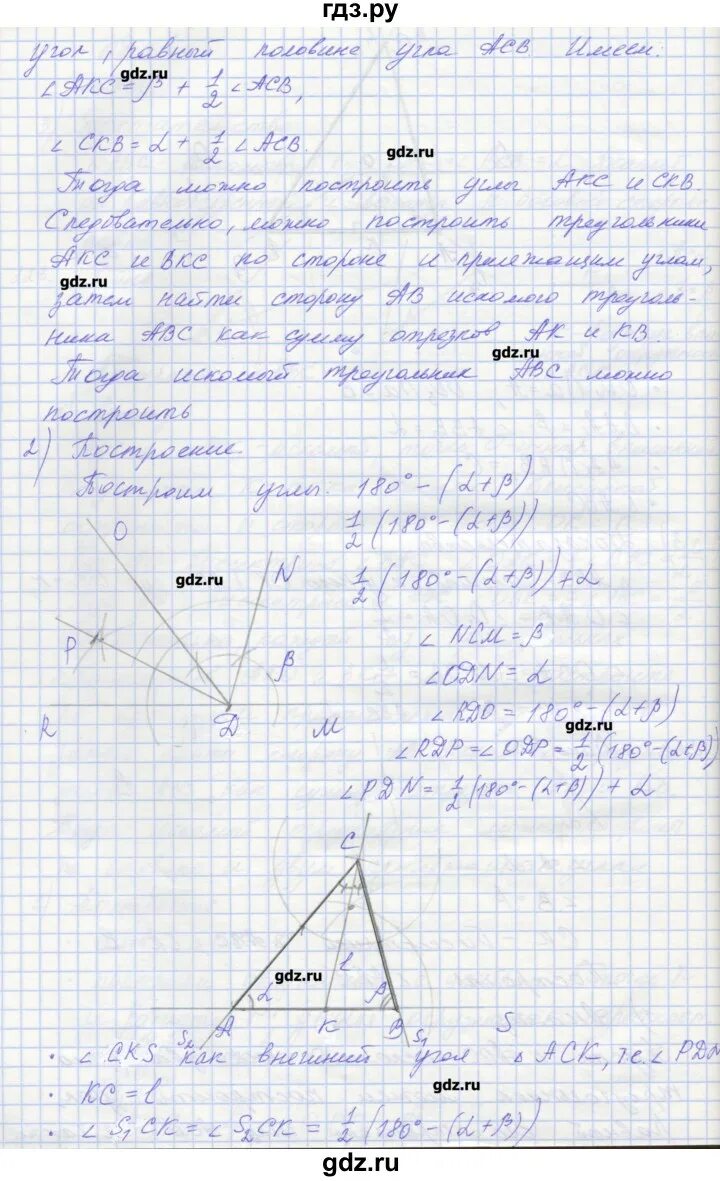 гдз.ру
угол, равный половине угла АСВ Имеем:
gdz.ru
∠АКС = β + 1/2 ∠АСВ,
∠СКВ = α + 1/2 ∠АСВ.
gdz.ru
Тогда можно построить углы АКС и СКВ.
Следовательно, можно построить треугольники
АКС и ВКС по стороне и прилежащим углам,
gdz.ru
затем найти сторону АВ искомого треуголь-
ника АВС как сумму отрезков АК и КВ.
gdz.ru
Тогда искомый треугольник АВС можно
построить
2) Построение
Построим углы: 180° - (α+β)
1/2 (180° - (α+β))
1/2 (180° - (α+β)) + α
O
N
gdz.ru
P
β
R
D
M
∠NCM = β
∠ODN = α
∠RDO = 180° - (α+β)
gdz.ru
∠RDP = ∠ODP = 1/2 (180° - (α+β))
∠PDN = 1/2 (180° - (α+β)) + α
C
l
gdz.ru
α
β
S₂
A
K
B
S₁
S
· ∠CKS как внешний угол △ACK, т.е. ∠PDN
gdz.ru
· KC = l
· ∠S₁CK = ∠S₂CK = 1/2 (180° - (α+β))
gdz.ru